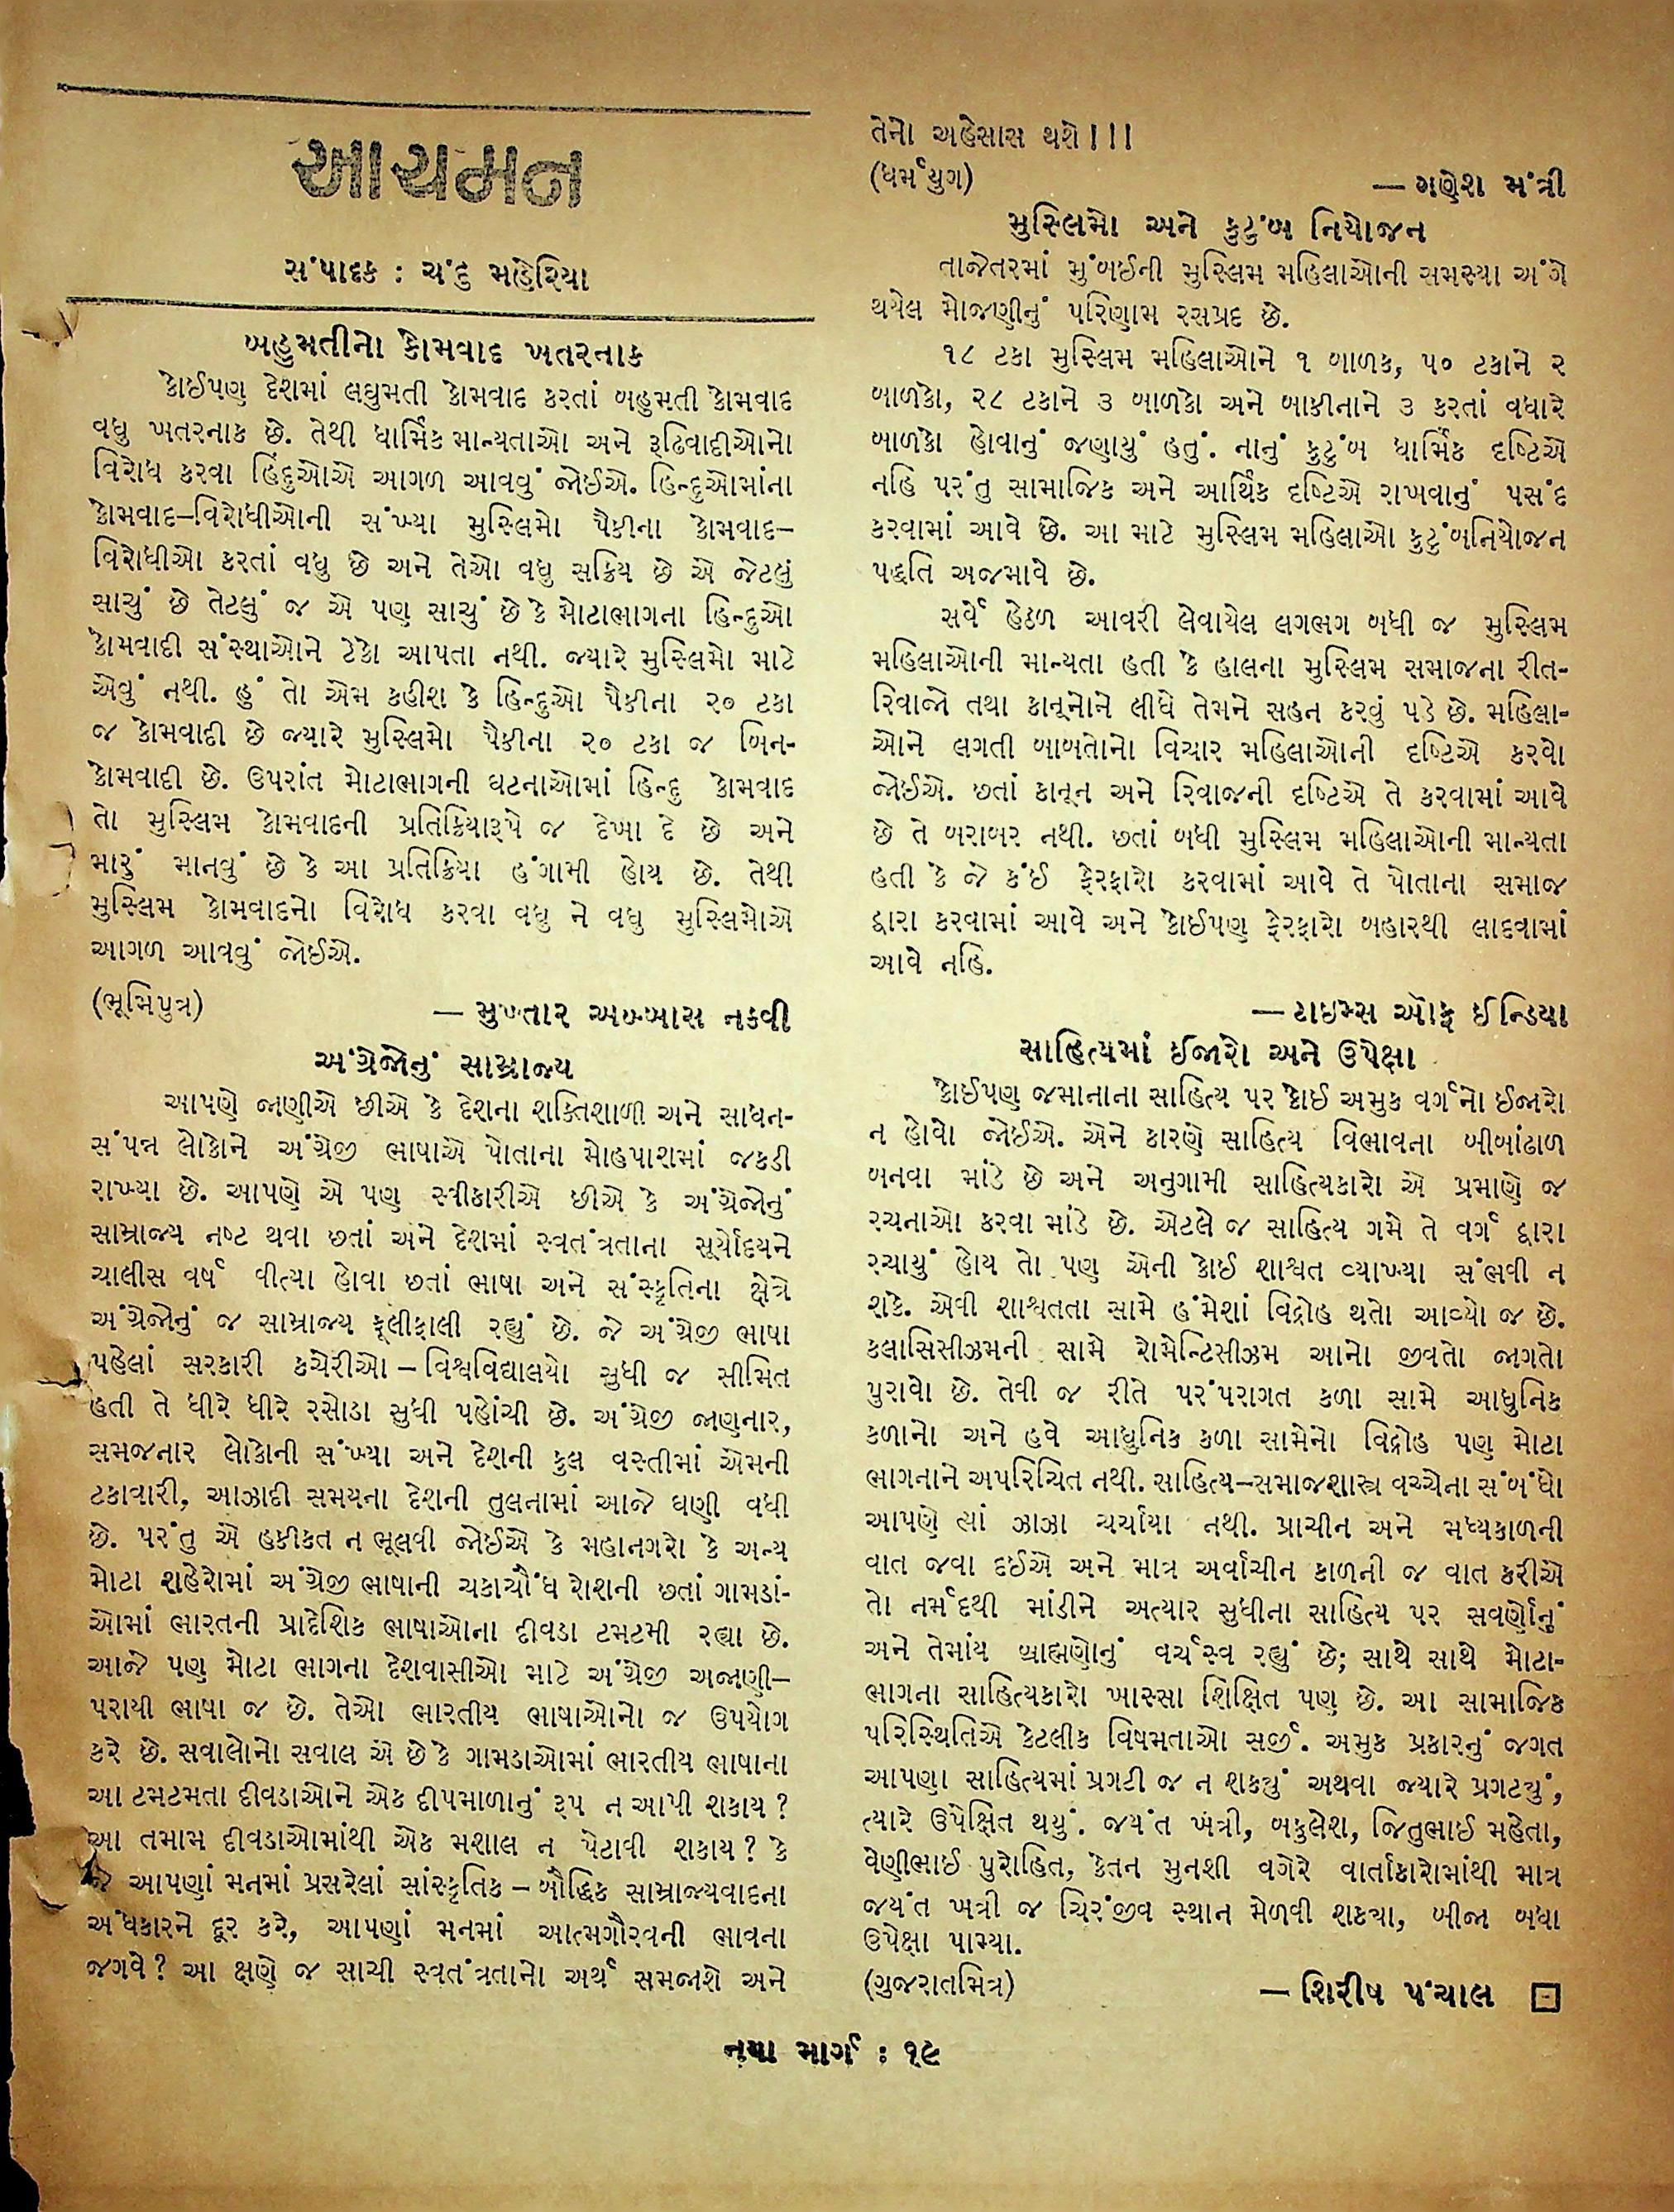 આચમન
સંપાદક : ચંદુ મહેરિયા
બહુમતીનો કોમવાદ ખતરનાક
કોઈપણ દેશમાં લઘુમતી કોમવાદ કરતાં બહુમતી કોમવાદ
વધુ ખતરનાક છે. તેથી ધાર્મિક માન્યતાઓ અને રૂઢિવાદીઓનો
વિરોધ કરવા હિંદુઓએ આગળ આવવું જોઈએ. હિન્દુઓમાંના
કોમવાદ–વિરોધીઓની સંખ્યા મુસ્લિમો પૈકીના કોમવાદ–
વિરોધીઓ કરતાં વધુ છે અને તેઓ વધુ સક્રિય છે એ જેટલું
સાચું છે તેટલું જ એ પણ સાચું છે કે મોટાભાગના હિન્દુઓ
કોમવાદી સંસ્થાઓને ટેકો આપતા નથી. જ્યારે મુસ્લિમો માટે
એવું નથી. હું તો એમ કહીશ કે હિન્દુઓ પૈકીના ૨૦ ટકા
જ કોમવાદી છે જ્યારે મુસ્લિમો પૈકીના ૨૦ ટકા જ બિન-
કોમવાદી છે. ઉપરાંત મોટાભાગની ઘટનાઓમાં હિન્દુ કોમવાદ
તો મુસ્લિમ કોમવાદની પ્રતિક્રિયારૂપે જ દેખા દે છે અને
મારું માનવું છે કે આ પ્રતિક્રિયા હંગામી હોય છે. તેથી
મુસ્લિમ કોમવાદનો વિરોધ કરવા વધુ ને વધુ મુસ્લિમોએ
આગળ આવવું જોઈએ.
(ભૂમિપુત્ર) — મુખ્તાર અબ્બાસ નકવી
અંગ્રેજોનું સામ્રાજ્ય
આપણે જાણીએ છીએ કે દેશના શક્તિશાળી અને સાધન-
સંપન્ન લોકોને અંગ્રેજી ભાષાએ પોતાના મોહપાશમાં જકડી
રાખ્યા છે. આપણે એ પણ સ્વીકારીએ છીએ કે અંગ્રેજોનું
સામ્રાજ્ય નષ્ટ થવા છતાં અને દેશમાં સ્વતંત્રતાના સૂર્યોદયને
ચાલીસ વર્ષ વીત્યા હોવા છતાં ભાષા અને સંસ્કૃતિના ક્ષેત્રે
અંગ્રેજોનું જ સામ્રાજ્ય ફૂલીફાલી રહ્યું છે. જે અંગ્રેજી ભાષા
પહેલાં સરકારી કચેરીઓ – વિશ્વવિદ્યાલયો સુધી જ સીમિત
હતી તે ધીરે ધીરે રસોડા સુધી પહોંચી છે. અંગ્રેજી જાણનાર,
સમજનાર લોકોની સંખ્યા અને દેશની કુલ વસ્તીમાં એમની
ટકાવારી, આઝાદી સમયના દેશની તુલનામાં આજે ઘણી વધી
છે. પરંતુ એ હકીકત ન ભૂલવી જોઈએ કે મહાનગરો કે અન્ય
મોટા શહેરોમાં અંગ્રેજી ભાષાની ચકાચૌંધ રોશની છતાં ગામડાં-
ઓમાં ભારતની પ્રાદેશિક ભાષાઓના દીવડા ટમટમી રહ્યા છે.
આજે પણ મોટા ભાગના દેશવાસીઓ માટે અંગ્રેજી અજાણી–
પરાયી ભાષા જ છે. તેઓ ભારતીય ભાષાઓનો જ ઉપયોગ
કરે છે. સવાલોનો સવાલ એ છે કે ગામડાઓમાં ભારતીય ભાષાના
આ ટમટમતા દીવડાઓને એક દીપમાળાનું રૂપ ન આપી શકાય ?
આ તમામ દીવડાઓમાંથી એક મશાલ ન પેટાવી શકાય ? કે
જે આપણાં મનમાં પ્રસરેલાં સાંસ્કૃતિક – બૌદ્ધિક સામ્રાજ્યવાદના
અંધકારને દૂર કરે, આપણાં મનમાં આત્મગૌરવની ભાવના
જગવે ? આ ક્ષણે જ સાચી સ્વતંત્રતાનો અર્થ સમજાશે અને
તેનો અહેસાસ થશે।।।
(ધર્મયુગ) — ગણેશ મંત્રી
મુસ્લિમો અને કુટુંબ નિયોજન
તાજેતરમાં મુંબઈની મુસ્લિમ મહિલાઓની સમસ્યા અંગે
થયેલ મોજણીનું પરિણામ રસપ્રદ છે.
૧૮ ટકા મુસ્લિમ મહિલાઓને ૧ બાળક, ૫૦ ટકાને ૨
બાળકો, ૨૮ ટકાને ૩ બાળકો અને બાકીનાને ૩ કરતાં વધારે
બાળકો હોવાનું જણાયું હતું. નાનું કુટુંબ ધાર્મિક દષ્ટિએ
નહિ પરંતુ સામાજિક અને આર્થિક દષ્ટિએ રાખવાનું પસંદ
કરવામાં આવે છે. આ માટે મુસ્લિમ મહિલાઓ કુટુંબનિયોજન
પદ્ધતિ અજમાવે છે.
સર્વે હેઠળ આવરી લેવાયેલ લગભગ બધી જ મુસ્લિમ
મહિલાઓની માન્યતા હતી કે હાલના મુસ્લિમ સમાજના રીત-
રિવાજો તથા કાનૂનોને લીધે તેમને સહન કરવું પડે છે. મહિલા-
ઓને લગતી બાબતોનો વિચાર મહિલાઓની દષ્ટિએ કરવો
જોઈએ. છતાં કાનૂન અને રિવાજની દષ્ટિએ તે કરવામાં આવે
છે તે બરાબર નથી. છતાં બધી મુસ્લિમ મહિલાઓની માન્યતા
હતી કે જે કંઈ ફેરફારો કરવામાં આવે તે પોતાના સમાજ
દ્વારા કરવામાં આવે અને કોઈપણ ફેરફારો બહારથી લાદવામાં
આવે નહિ.
— ટાઇમ્સ ઑફ ઈન્ડિયા
સાહિત્યમાં ઈજારો અને ઉપેક્ષા
કોઈપણ જમાનાના સાહિત્ય પર કોઈ અમુક વર્ગનો ઈજારો
ન હોવો જોઈએ. એને કારણે સાહિત્ય વિભાવના બીબાંઢાળ
બનવા માંડે છે અને અનુગામી સાહિત્યકારો એ પ્રમાણે જ
રચનાઓ કરવા માંડે છે. એટલે જ સાહિત્ય ગમે તે વર્ગ દ્વારા
રચાયું હોય તો પણ એની કોઈ શાશ્વત વ્યાખ્યા સંભવી ન
શકે. એવી શાશ્વતતા સામે હંમેશાં વિદ્રોહ થતો આવ્યો જ છે.
કલાસિસીઝમની સામે રોમેન્ટિસીઝમ આનો જીવતો જાગતો
પુરાવો છે. તેવી જ રીતે પરંપરાગત કળા સામે આધુનિક
કળાનો અને હવે આધુનિક કળા સામેનો વિદ્રોહ પણ મોટા
ભાગનાને અપરિચિત નથી. સાહિત્ય–સમાજશાસ્ત્ર વચ્ચેના સંબંધો
આપણે ત્યાં ઝાઝા ચર્ચાયા નથી. પ્રાચીન અને મધ્યકાળની
વાત જવા દઈએ અને માત્ર અર્વાચીન કાળની જ વાત કરીએ
તો નર્મદથી માંડીને અત્યાર સુધીના સાહિત્ય પર સવર્ણોનું
અને તેમાંય બ્રાહ્મણોનું વર્ચસ્વ રહ્યું છે; સાથે સાથે મોટા-
ભાગના સાહિત્યકારો ખાસ્સા શિક્ષિત પણ છે. આ સામાજિક
પરિસ્થિતિએ કેટલીક વિષમતાઓ સર્જી. અમુક પ્રકારનું જગત
આપણા સાહિત્યમાં પ્રગટી જ ન શકયું અથવા જ્યારે પ્રગટયું,
ત્યારે ઉપેક્ષિત થયું. જયંત ખત્રી, બકુલેશ, જિતુભાઈ મહેતા,
વેણીભાઈ પુરોહિત, કેતન મુનશી વગેરે વાર્તાકારોમાંથી માત્ર
જયંત ખત્રી જ ચિરંજીવ સ્થાન મેળવી શકયા, બીજા બધા
ઉપેક્ષા પામ્યા.
(ગુજરાતમિત્ર) — શિરીષ પંચાલ
નયા માર્ગ : ૧૯